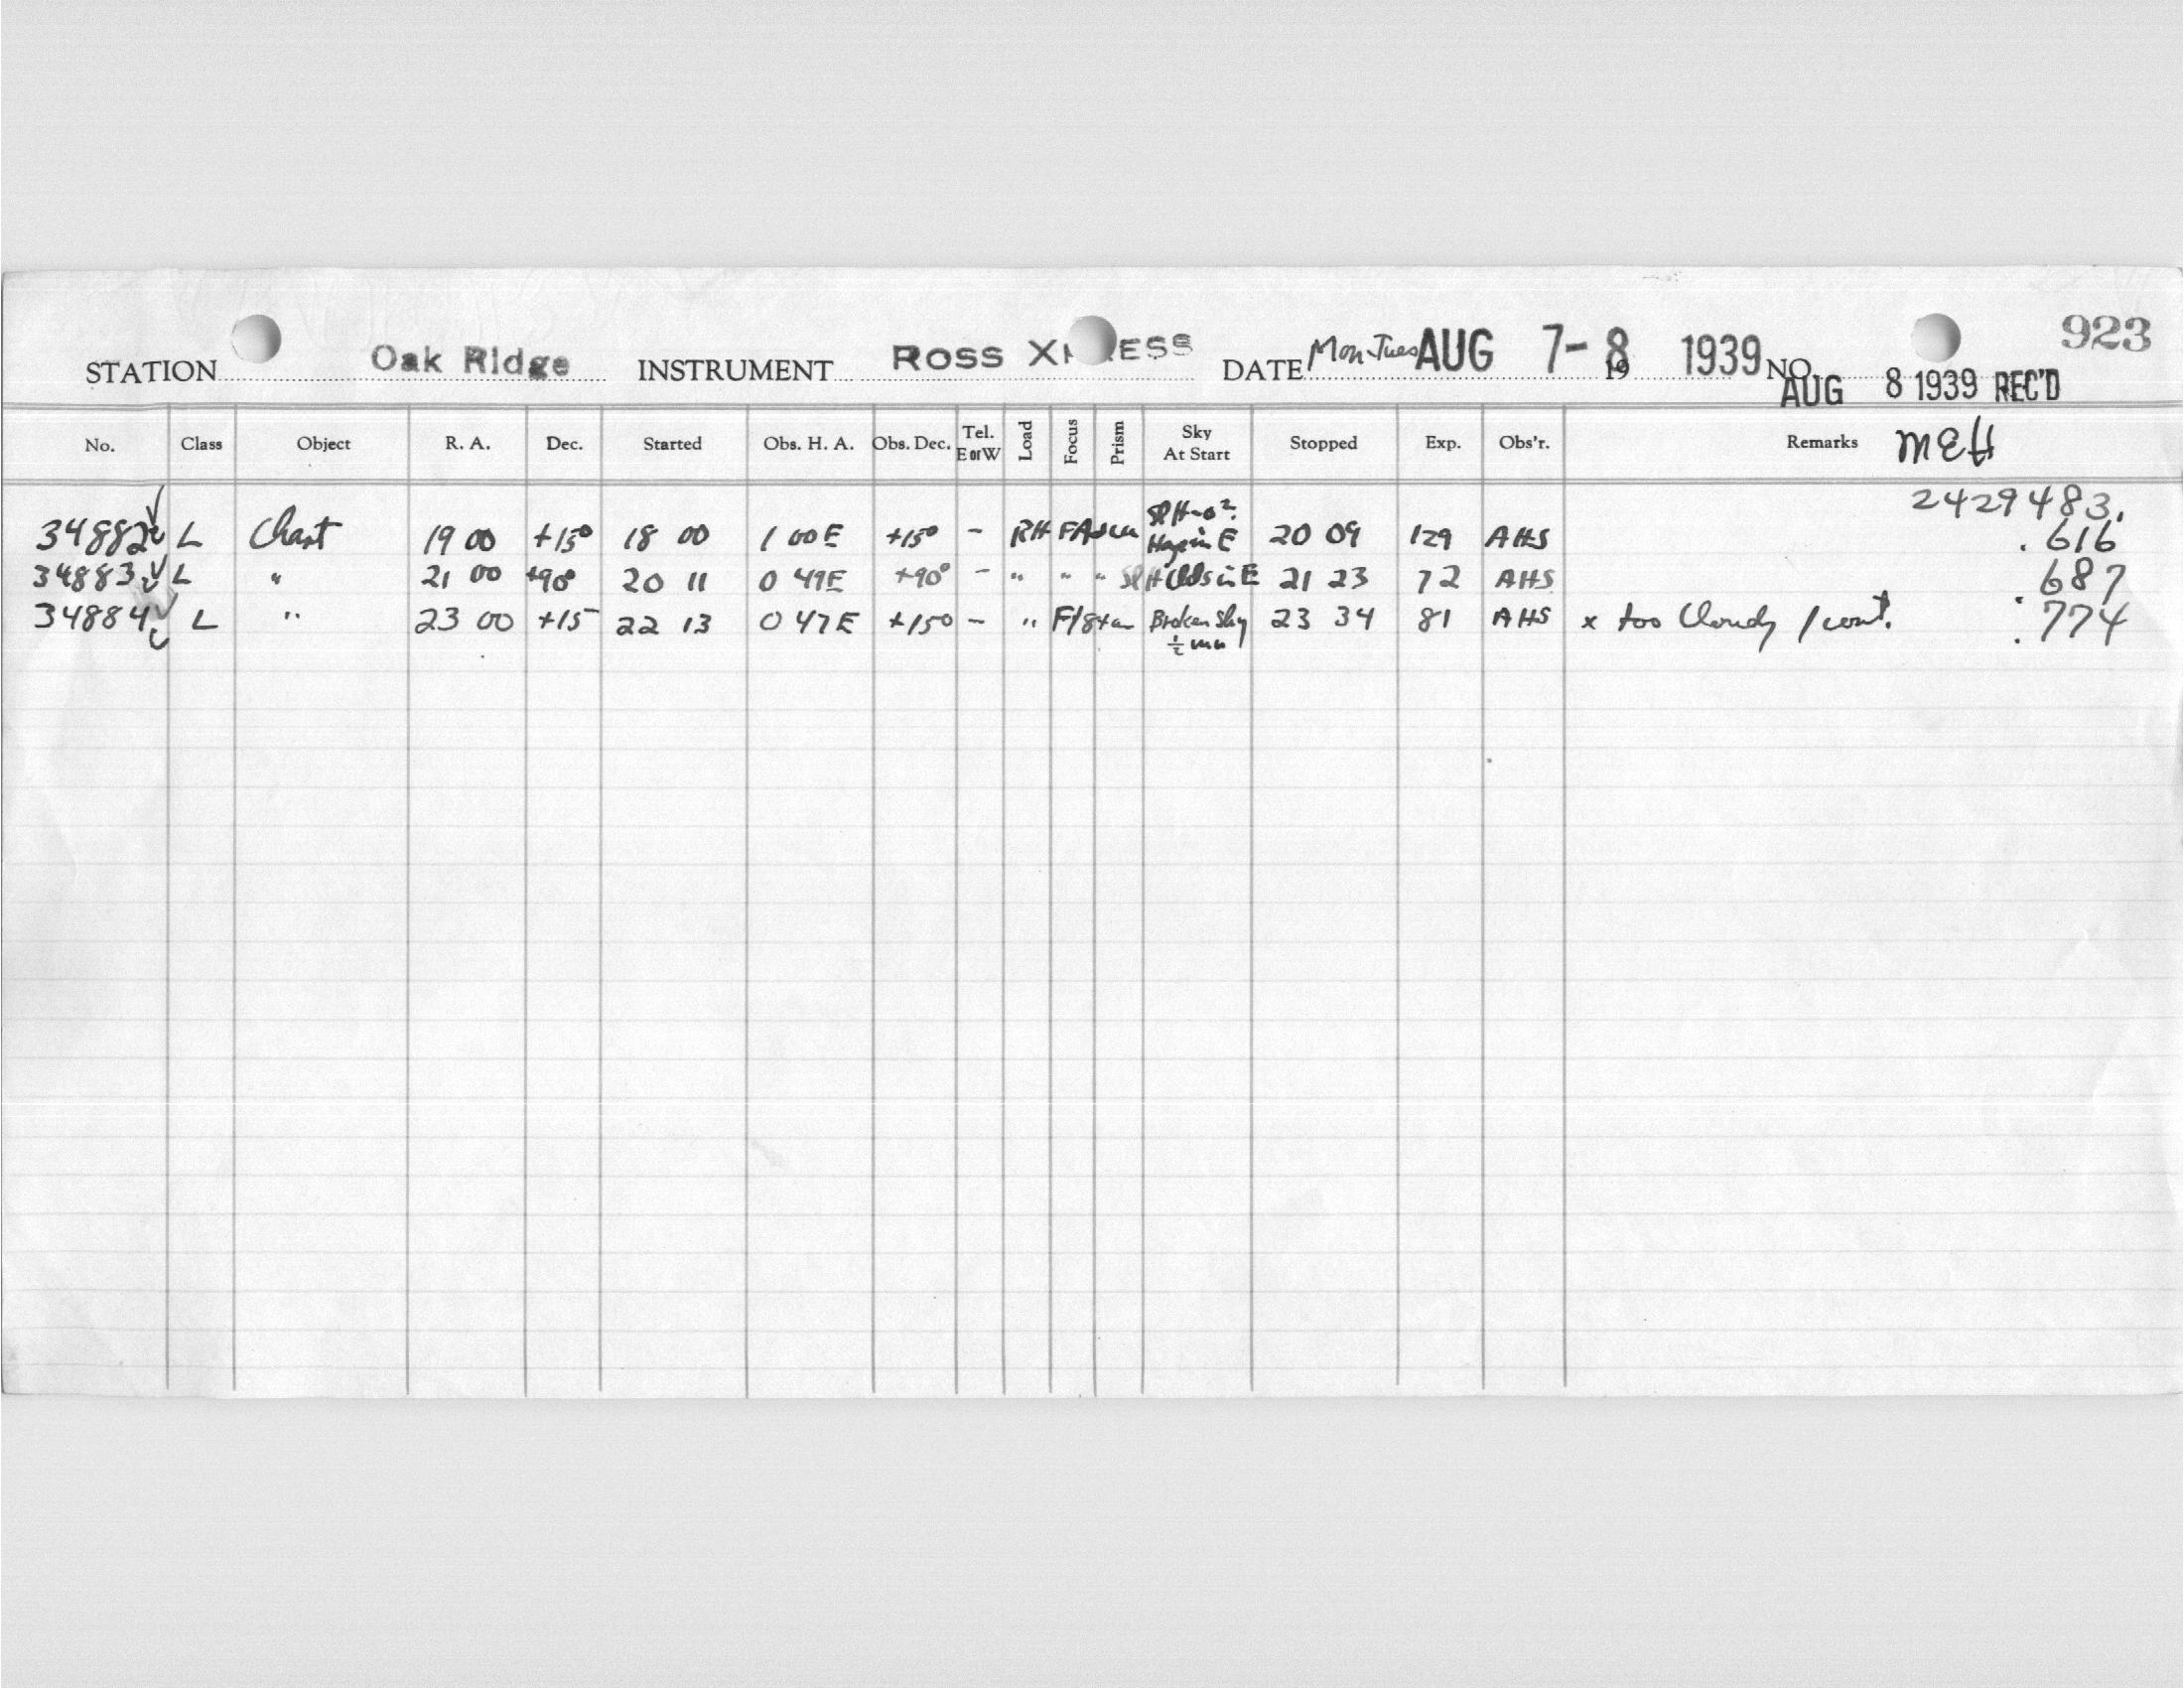 923
STATION Oak Ridge INSTRUMENT ROSS X ESS DATE Mon-Tues AUG 7-8 1939 19 NO.
AUG 8 1939 REC'D
No. Class Object R. A. Dec. Started Obs. H. A. Obs. Dec. Tel. E or W Load Focus Prism Sky At Start Stopped Exp. Obs'r. Remarks MEH
2429483.
34882 L Chart 19 00 +15° 18 00 1 00 E +15° - RH Haze in E 20 09 129 AHS .616
34883 L " 21 00 +90° 20 11 0 49E +90° - " " " Clds in E 21 23 72 AHS .687
34884 L " 23 00 +15 22 13 0 47E +15° - " Broken Sky 23 34 81 AHS x too Cloudy / cont. .774